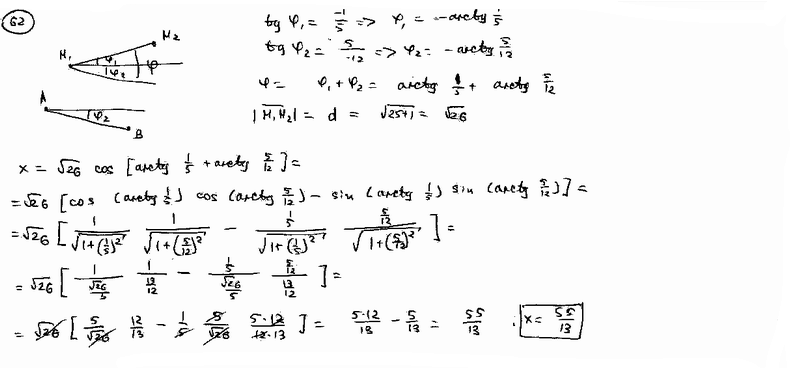 62
tg φ₁ = -1/5 => φ₁ = -arctg 1/5
M₁ M₂ φ₁ φ₂ φ
tg φ₂ = 5/-12 => φ₂ = -arctg 5/12
φ = φ₁ + φ₂ = arctg 1/5 + arctg 5/12
A φ₂ B
|M₁M₂| = d = √25+1 = √26
x = √26 cos [arctg 1/5 + arctg 5/12] =
= √26 [cos (arctg 1/5) cos (arctg 5/12) - sin (arctg 1/5) sin (arctg 5/12)] =
= √26 [ 1/√(1+(1/5)²) 1/√(1+(5/12)²) - (1/5)/√(1+(1/5)²) (5/12)/√(1+(5/12)²) ] =
= √26 [ 1/(√26/5) 1/(13/12) - (1/5)/(√26/5) (5/12)/(13/12) ] =
= √26 [ 5/√26 12/13 - 1/5 5/√26 5·12/12·13 ] = 5·12/13 - 5/13 = 55/13 : x = 55/13